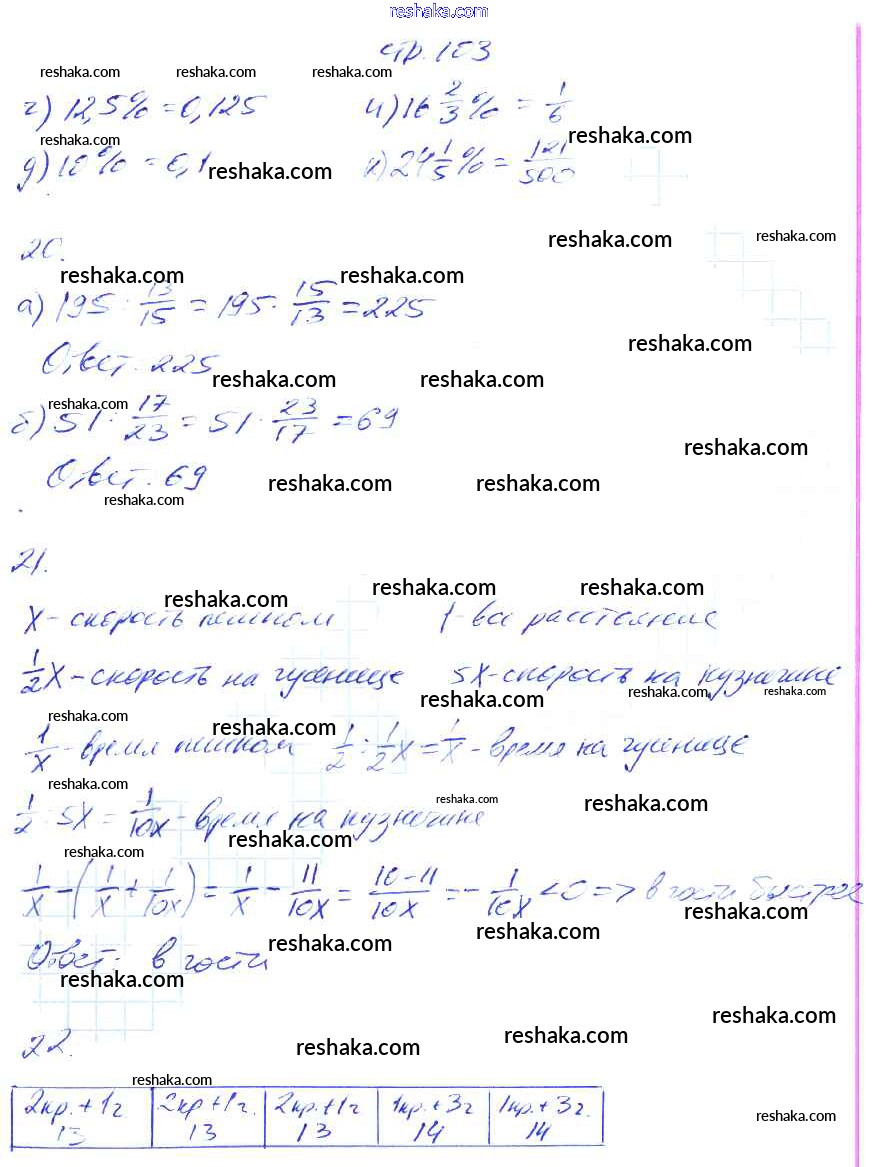 reshaka.com
стр. 103
reshaka.com reshaka.com reshaka.com
г) 12,5% = 0,125 и) 16 2/3 % = 1/6
reshaka.com reshaka.com
д) 10% = 0,1 к) 24 1/5 % = 121/500
reshaka.com
20.
reshaka.com reshaka.com
reshaka.com reshaka.com
а) 195 : 13/15 = 195 · 15/13 = 225
reshaka.com
Ответ: 225
reshaka.com reshaka.com
reshaka.com
б) 51 : 17/23 = 51 · 23/17 = 69
reshaka.com
Ответ: 69
reshaka.com reshaka.com
reshaka.com
21.
reshaka.com reshaka.com
reshaka.com
x - скорость пешком 1 - все расстояние
1/2 x - скорость на гусенице 5x - скорость на кузнечике
reshaka.com reshaka.com reshaka.com
reshaka.com reshaka.com
1/x - время пешком 1/2 : 1/2 x = 1/x - время на гусенице
reshaka.com reshaka.com reshaka.com
1/2 : 5x = 1/10x - время на кузнечике
reshaka.com
reshaka.com
1/x - (1/x + 1/10x) = 1/x - 11/10x = 10-11/10x = - 1/10x < 0 => в гости быстрее
reshaka.com
reshaka.com
reshaka.com
Ответ: в гости
reshaka.com
22.
reshaka.com
reshaka.com reshaka.com
reshaka.com
2кр. + 1г 2кр + 1г. 2кр. + 1г 1кр. + 3г 1кр. + 3г.
13 13 13 14 14
reshaka.com